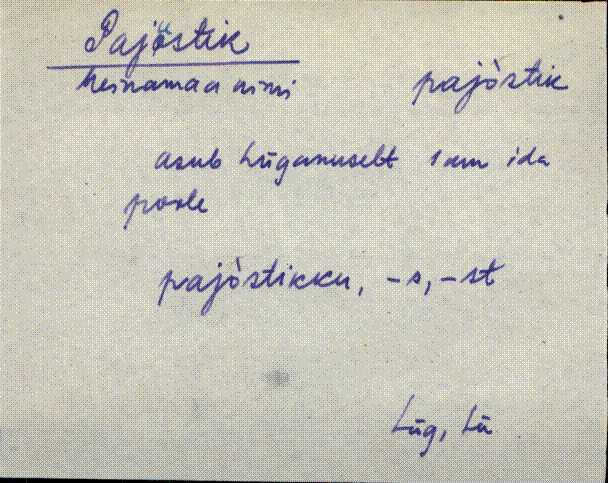 Pajüstik
heinamaa nimi pajòstik
asub Lüganuselt 1 km ida
poole
pajòstikku, -s, -st
Lüg, Lü